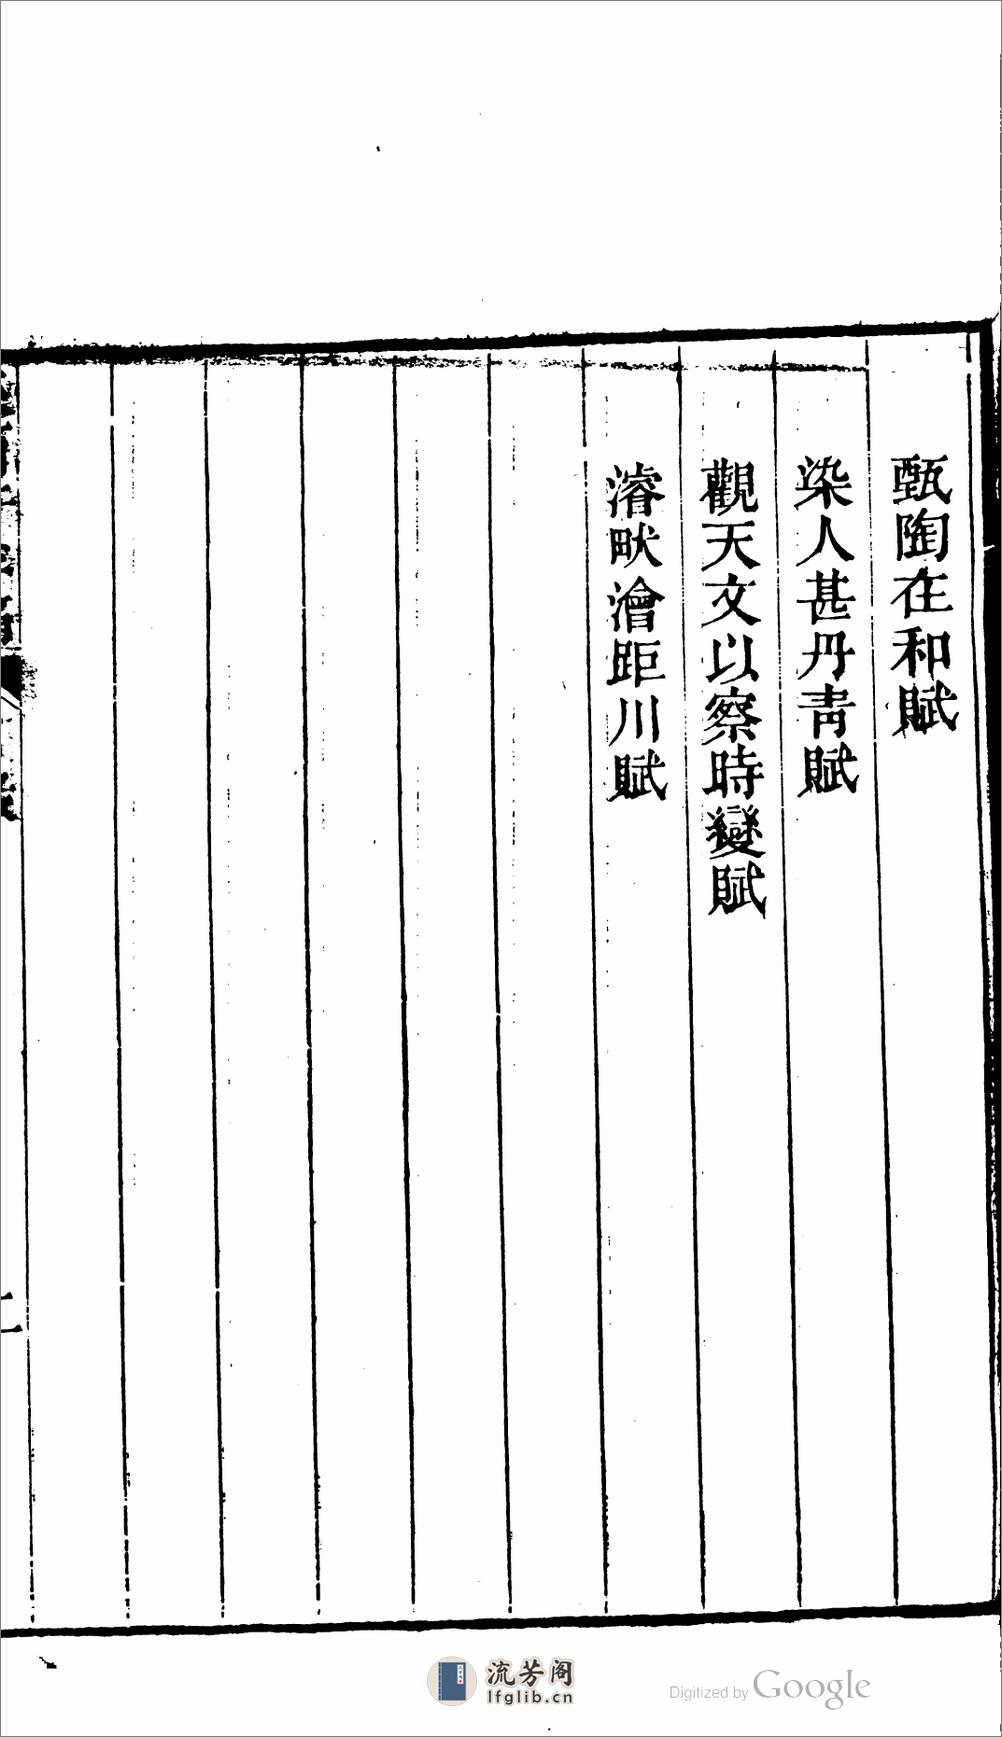 甄陶在和賦
染人甚丹青賦
觀天文以察時變賦
濬畎澮距川賦
二
流芳阁
lfglib.cn
Digitized by Google